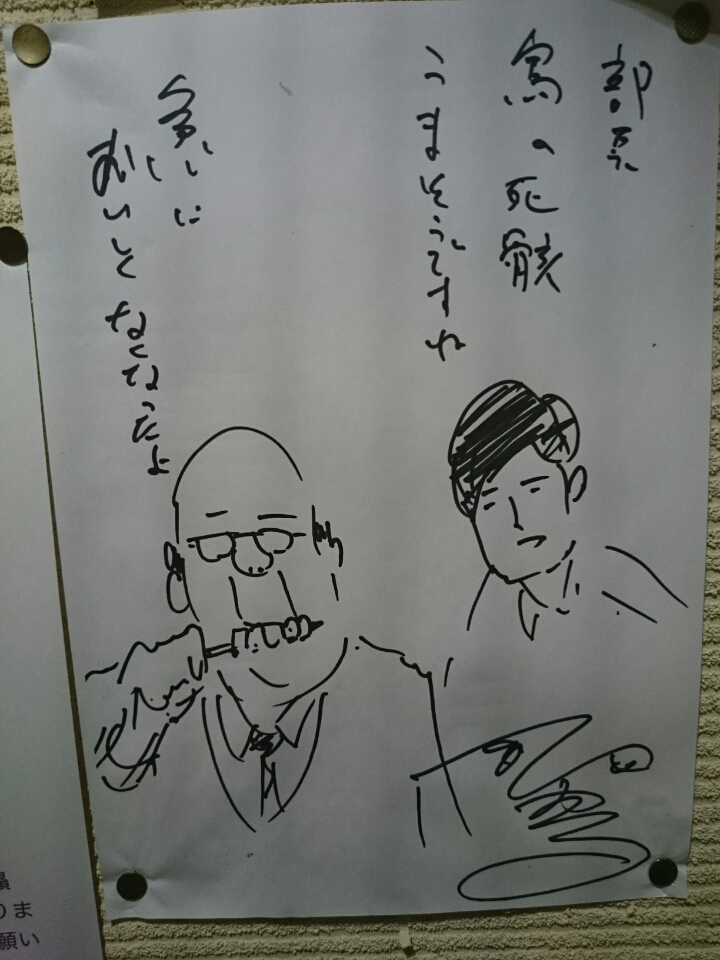 部長
鳥の死骸
うまそうですね
急に
おいしくなくなったよ
りま
願い